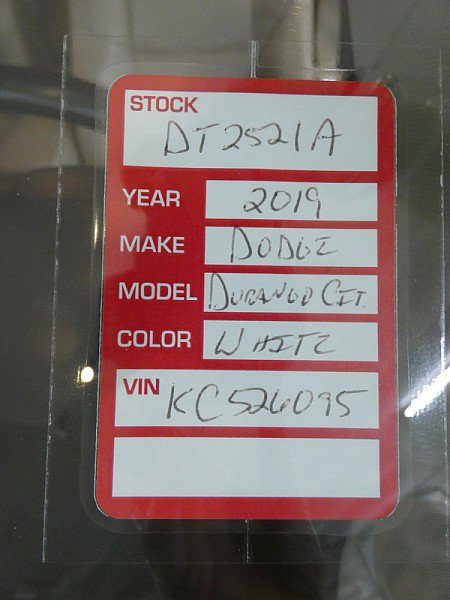 STOCK
DT2521A
YEAR 2019
MAKE DODGE
MODEL DURANGO CIT
COLOR WHITE
VIN KC526095